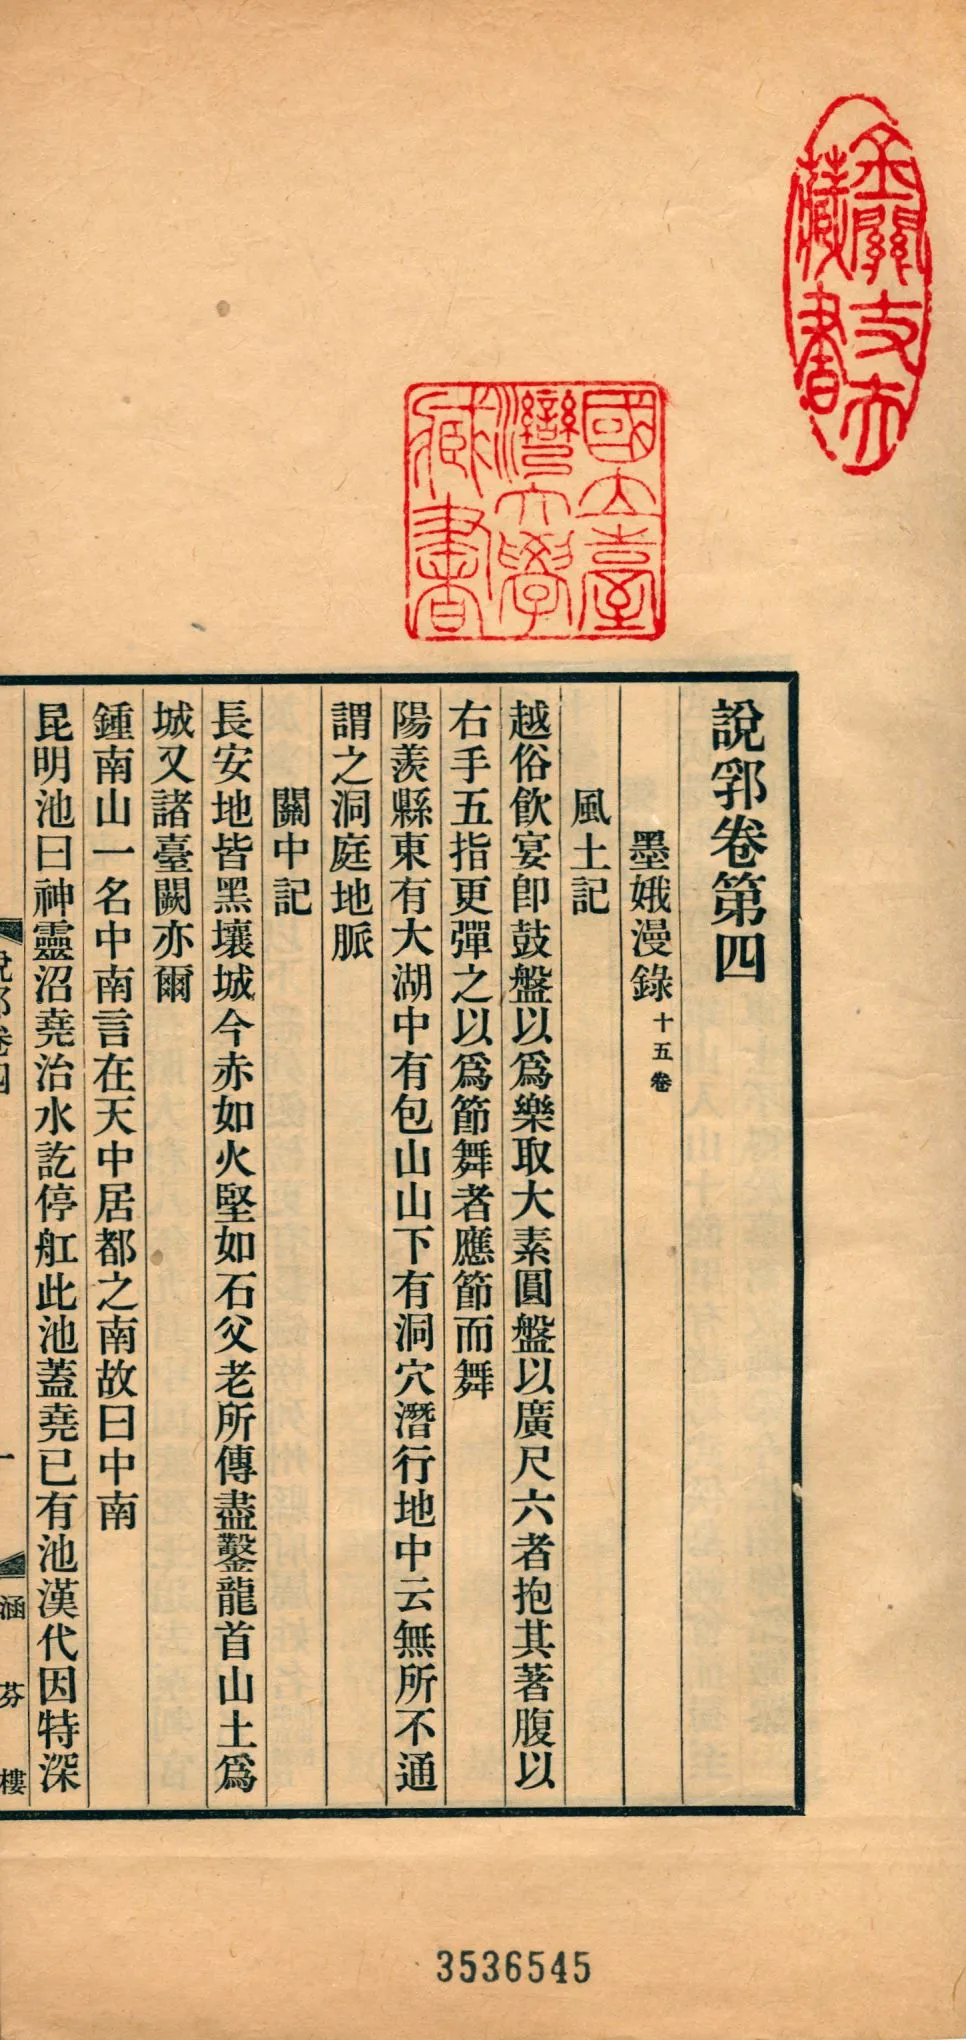 金關丈夫
藏書
國立臺
灣大學
藏書
說郛卷第四
墨娥漫錄十五卷
風土記
越俗飲宴卽鼓盤以爲樂取大素圓盤以廣尺六者抱其著腹以
右手五指更彈之以爲節舞者應節而舞
陽羨縣東有大湖中有包山山下有洞穴潛行地中云無所不通
謂之洞庭地脈
關中記
長安地皆黑壤城今赤如火堅如石父老所傳盡鑿龍首山土爲
城又諸臺闕亦爾
鍾南山一名中南言在天中居都之南故曰中南
昆明池曰神靈沼堯治水訖停舡此池蓋堯已有池漢代因特深
說郛卷四
一
涵芬樓
3536545